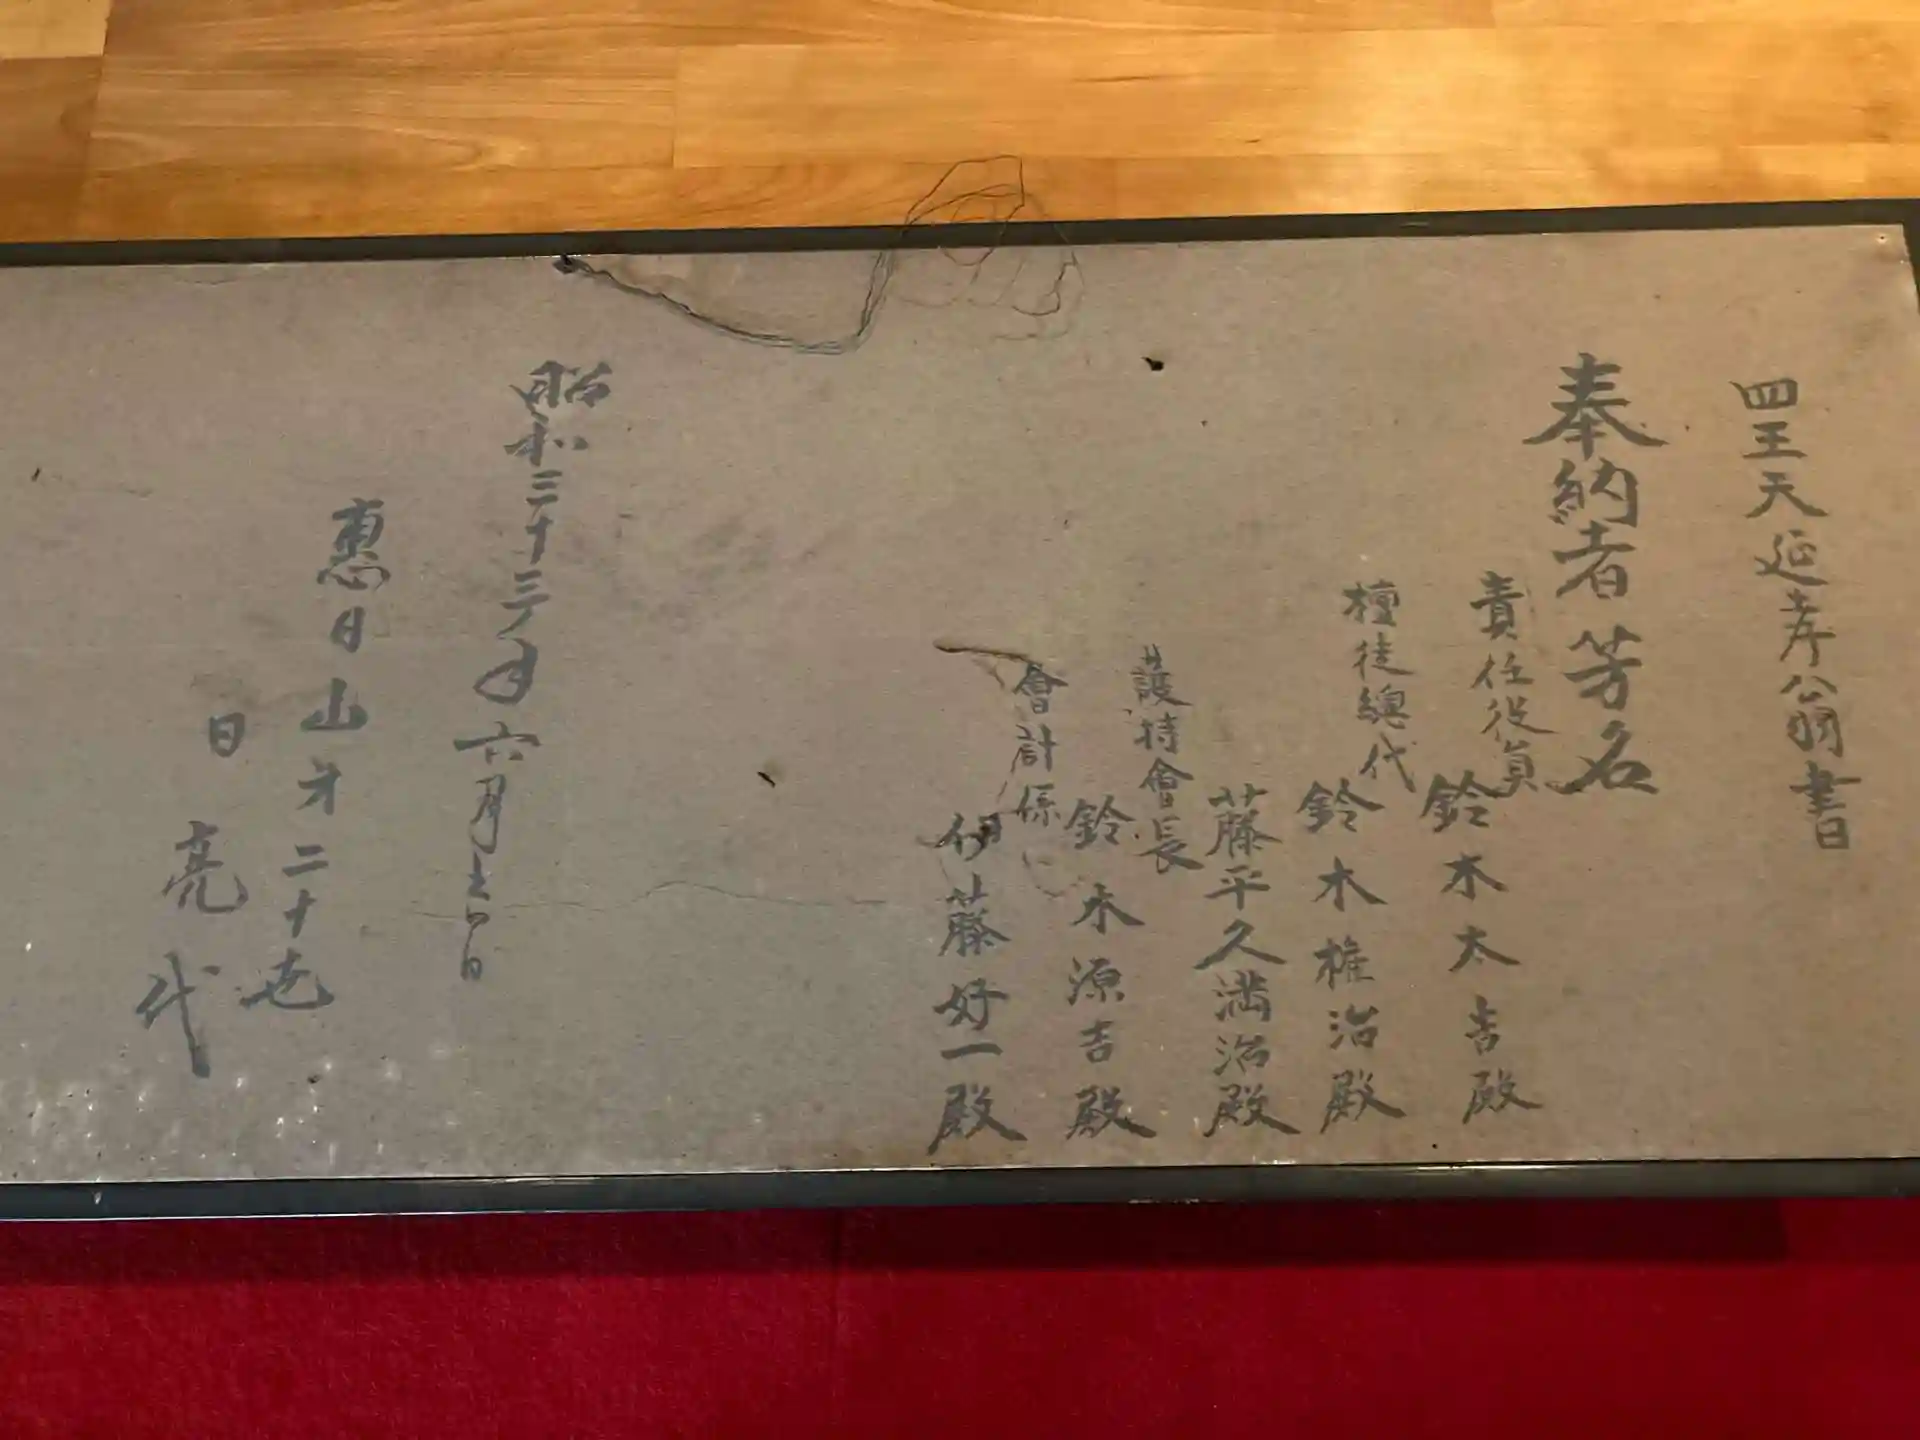 四王天延孝公翁書
奉納者芳名
責任役員
鈴木太吉殿
檀徒總代
鈴木権治殿
藤平久満治殿
護持會長
鈴木源吉殿
會計係
伊藤好一殿
昭和三十三年六月七日
惠日山才二十世
日亮代